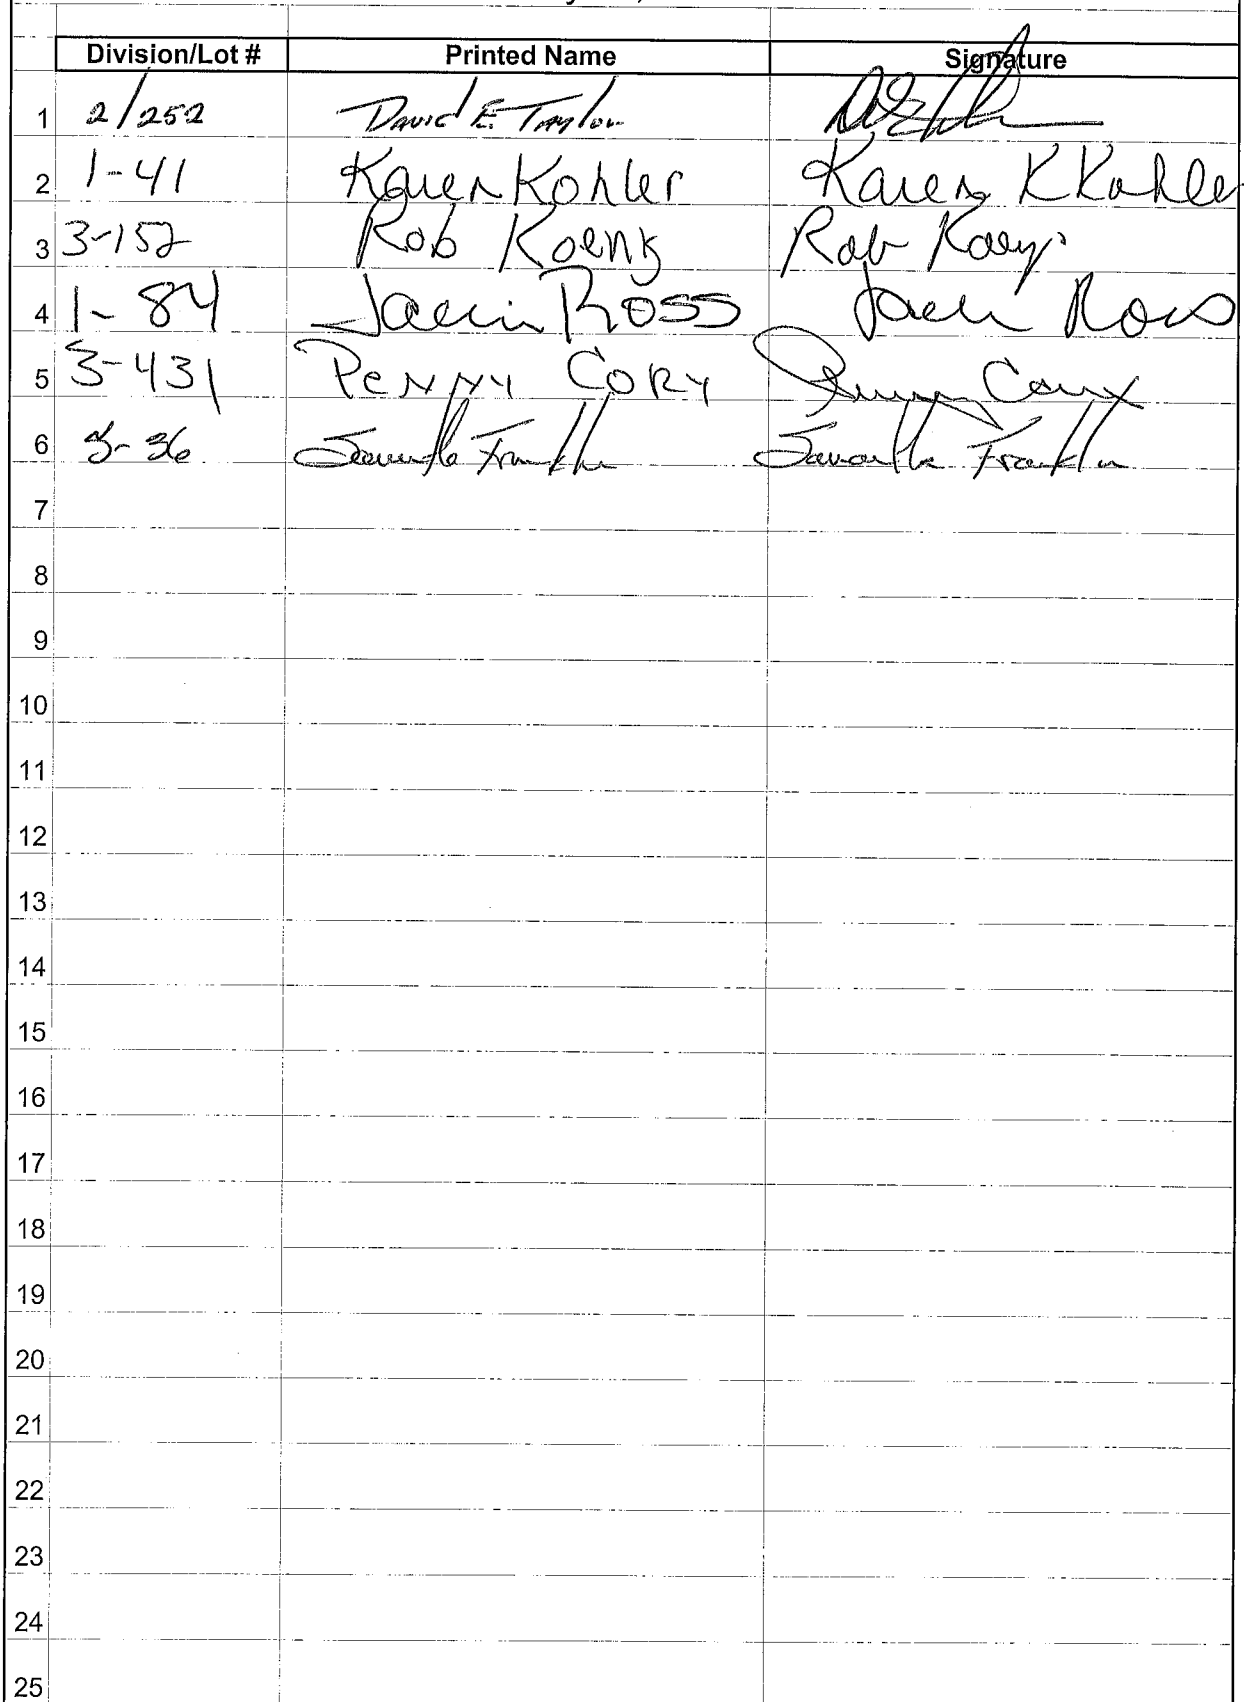 Division/Lot # Printed Name Signature
1 2/252 David E. Taylor
2 1-41 Karen Kohler Karen K Kohler
3 3-152 Rob Rob
4 1-84 Ross Ross
5 3-431 Penny Cory Penny Cory
6 3-36 Samantha Franklin Samantha Franklin
7
8
9
10
11
12
13
14
15
16
17
18
19
20
21
22
23
24
25